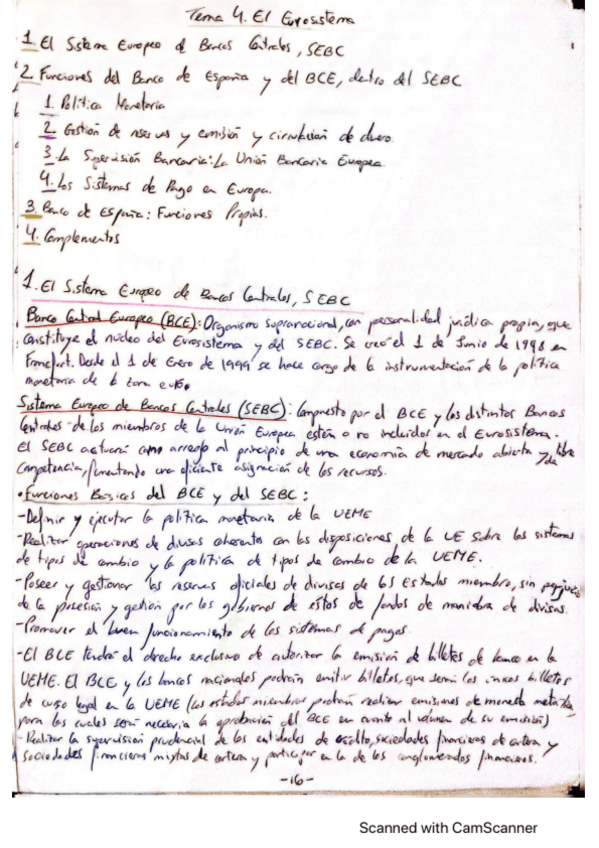 Tema 4. El Eurosistema
1. El Sistema Europeo de Bancos Centrales, SEBC
2. Funciones del Banco de España y del BCE, dentro del SEBC
1. Política Monetaria
2. Gestión de reservas y emisión y circulación de dinero.
3. La Supervisión Bancaria: La Unión Bancaria Europea.
4. Los Sistemas de Pago en Europa.
3. Banco de España: Funciones Propias.
4. Complementos
1. El Sistema Europeo de Bancos Centrales, SEBC
Banco Central Europeo (BCE): Organismo supranacional, con personalidad jurídica propia, que
constituye el núcleo del Eurosistema y del SEBC. Se creó el 1 de Junio de 1998 en
Francfort. Desde el 1 de Enero de 1999 se hace cargo de la instrumentación de la política
monetaria de la zona euro.
Sistema Europeo de Bancos Centrales (SEBC): Compuesto por el BCE y los distintos Bancos
Centrales de los miembros de la Unión Europea estén o no incluidos en el Eurosistema.
El SEBC actuará como arreglo al principio de una economía de mercado abierta y de libre
competencia, fomentando una eficiente asignación de los recursos.
• Funciones Básicas del BCE y del SEBC:
- Definir y ejecutar la política monetaria de la UEME
- Realizar operaciones de divisas coherentes con las disposiciones de la UE sobre los sistemas
de tipos de cambio y la política de tipos de cambio de la UEME.
- Poseer y gestionar las reservas oficiales de divisas de los Estados miembro, sin perjuicio
de la posesión y gestión por los gobiernos de éstos de fondos de maniobra de divisas.
- Promover el buen funcionamiento de los sistemas de pagos.
- El BCE tendrá el derecho exclusivo de autorizar la emisión de billetes de banco en la
UEME. El BCE y los bancos nacionales podrán emitir billetes, que serán los únicos billetes
de curso legal en la UEME (Los estados miembros podrán realizar emisiones de moneda metálica
para los cuales será necesaria la aprobación del BCE en cuanto al volumen de su emisión)
- Realizar la supervisión prudencial de las entidades de crédito, sociedades financieras de cartera y
sociedades financieras mixtas de cartera y participar en la de los conglomerados financieros.
-16-
Scanned with CamScanner